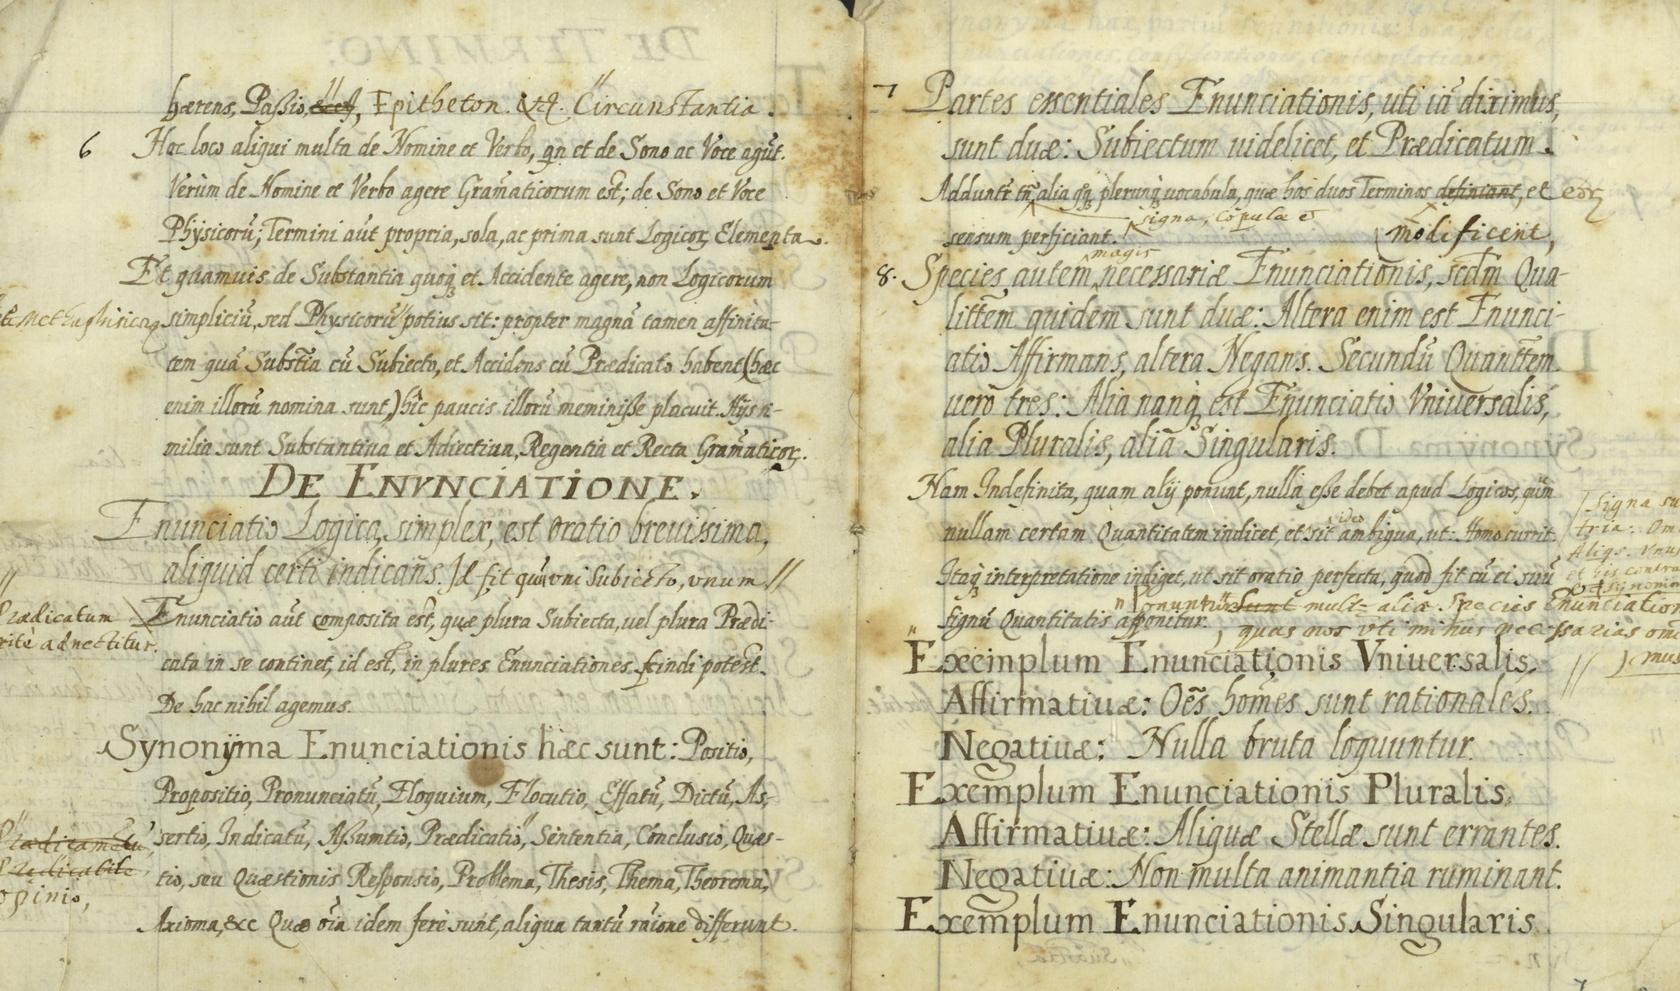 hærens, Passio, Epitheton. Circunstantia.
6 Hoc loco aliqui multa de Nomine et Verbo, qn et de Sono ac Voce agūt.
Verùm de Nomine et Verbo agere Gram̄aticorum est; de Sono et Voce
Physicorū; Termini aūt propria, sola, ac prima sunt Logicoꝝ Elementa.
Et quamuis de Substantia quoqꝫ et Accidente agere, non Logicorum
simpliciū, sed Physicorū potius sit: propter magnā tamen affinita-
tem quā Substīa cū Subiecto, et Accidens cū Prædicato habent (hæc
enim illorū nomina sunt,) hîc paucis illorū meminisse placuit. Hijs si-
milia sunt Substantiua et Adiectiua, Regentia et Recta Gram̄aticoꝝ.
DE ENVNCIATIONE.
Enunciatio Logica, simplex, est oratio breuissima,
aliquid certi indicans. Id fit quū vni Subiecto, vnum //
// Prædicatum
ritè adnectitur.
Enunciatio aūt composita est, quæ plura Subiecta, uel plura Prædi-
cata in se continet, id est, in plures Enunciationes scindi potest.
De hac nihil agemus.
Synonyma Enunciationis hæc sunt: Positio,
Propositio, Pronunciatū, Eloquium, Elocutio, Effatū, Dictū, As-
sertio, Indicatū, Assumtio, Prædicatio, Sententia, Conclusio, Quæs-
Prædicamētū,
Prædicabile,
opinio,
tio, seu Quæstionis Responsio, Problema, Thesis, Thema, Theorema,
Axioma, &c Quæ oīa idem ferè sunt, aliqua tantū raīone differunt.
7 Partes essentiales Enunciationis, uti iā diximus,
sunt duæ: Subiectum uidelicet, et Prædicatum.
Adduntr tn̄ alia qꝫ plerunqꝫ uocabula, quæ hos duos Terminos definiant, et eoꝝ
signa, copulæ
sensum perficiant. modificent,
magis
8. Species autem necessariæ Enunciationis, scdm Qua-
littem quidem sunt duæ: Altera enim est Enunci-
atio Affirmans, altera Negans. Secundū Quanttem
uerò tres: Alia nanqꝫ est Enunciatio Vniuersalis,
alia Pluralis, alia Singularis.
Nam Indefinita, quam alij ponunt, nulla esse debet apud Logicos, qum
nullam certam Quantitatem indicet, et sit ideo ambigua, ut: Homo currit.
Itaqꝫ interpretatione indiget, ut sit oratio perfecta, quod fit cū ei suū
signū Quantitatis apponitur.
Signa su
tria: Om
Aliqs. Vnus
Ponuntur sunt multæ aliæ Species Enunciation
quas nos vti minus necessarias omi
mus
Exemplum Enunciationis Vniuersalis.
Affirmatiuæ: Oēs hoīes sunt rationales.
Negatiuæ: Nulla bruta loquuntur.
Exemplum Enunciationis Pluralis.
Affirmatiuæ: Aliquæ Stellæ sunt errantes.
Negatiuæ: Non multa animantia ruminant.
Exemplum Enunciationis Singularis